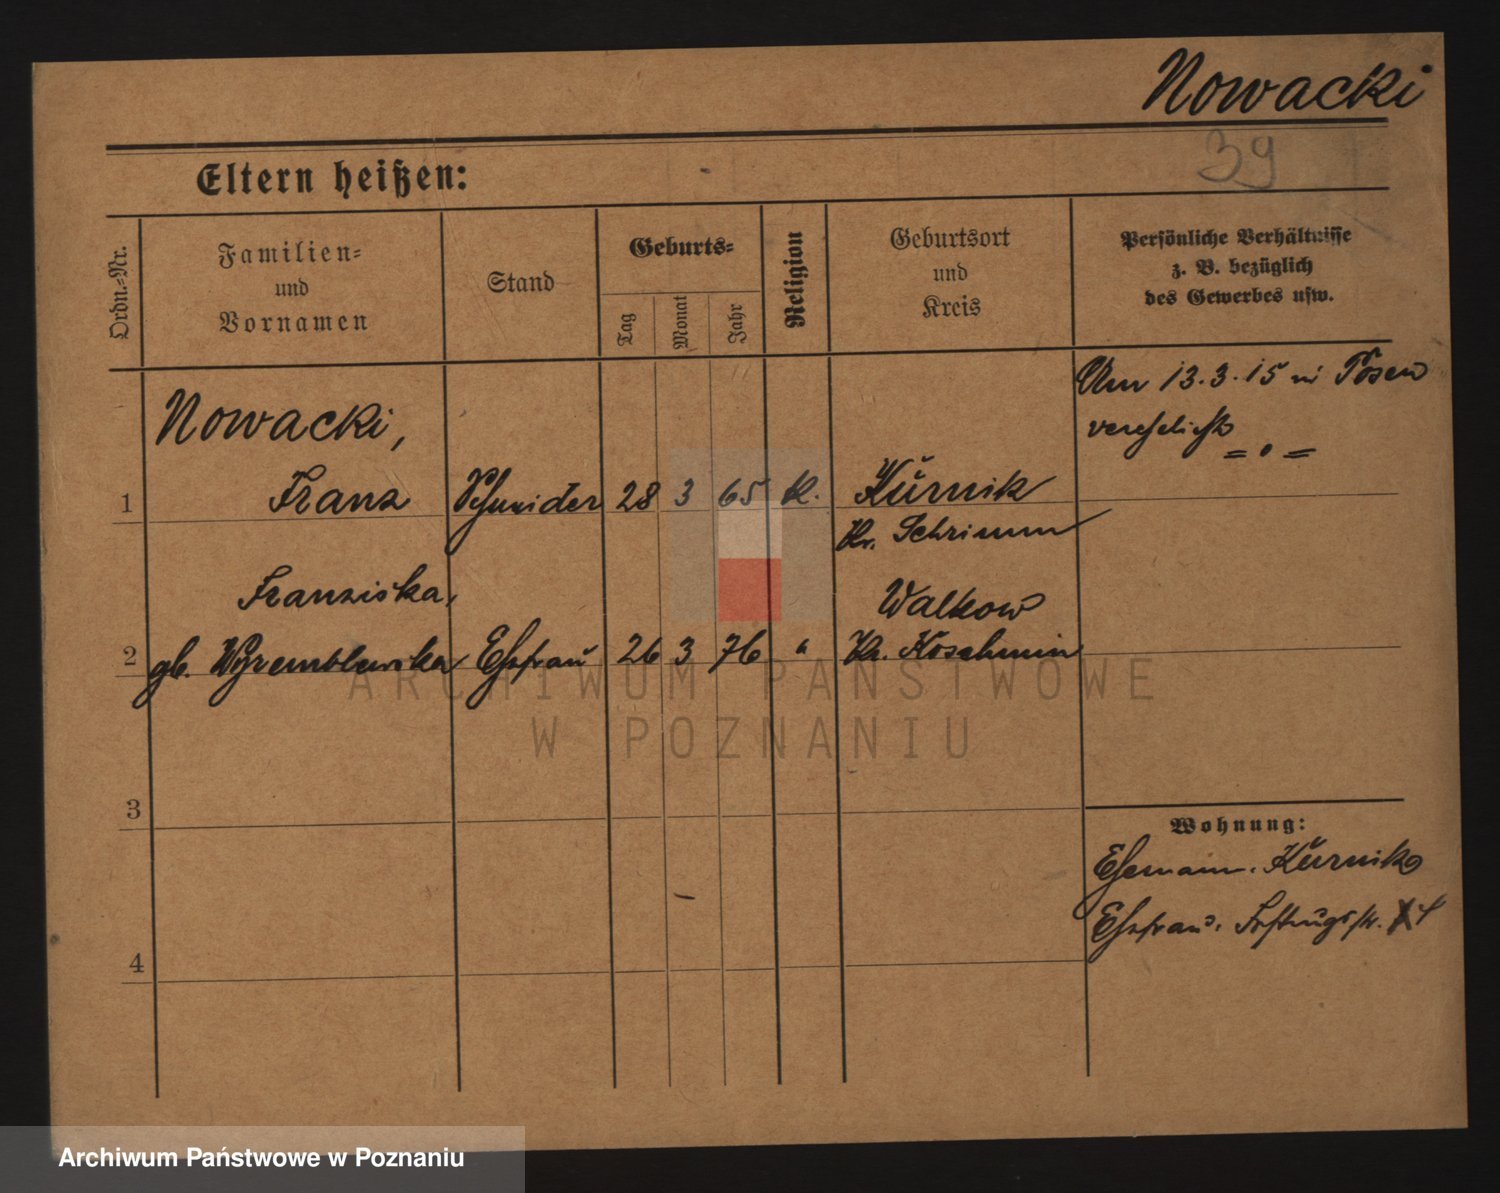 Nowacki
39
Eltern heißen:
Ordn.-Nr.
Familien-
und
Vornamen
Stand
Geburts-
Tag
Monat
Jahr
Religion
Geburtsort
und
Kreis
Persönliche Verhältnisse
z. B. bezüglich
des Gewerbes usw.
Am 13.3.15 in Posen
verehelicht
= " =
Nowacki,
1 Franz Schneider 28 3 65 k. Kurnik
Kr. Schrimm
Franziska, Walkow
2 gb. Wyremblewska Ehefrau 26 3 76 " Kr. Koschmin
3
Wohnung:
Ehemann. Kurnik
Ehefrau.
4
ARCHIWUM PAŃSTWOWE
W POZNANIU
Archiwum Państwowe w Poznaniu